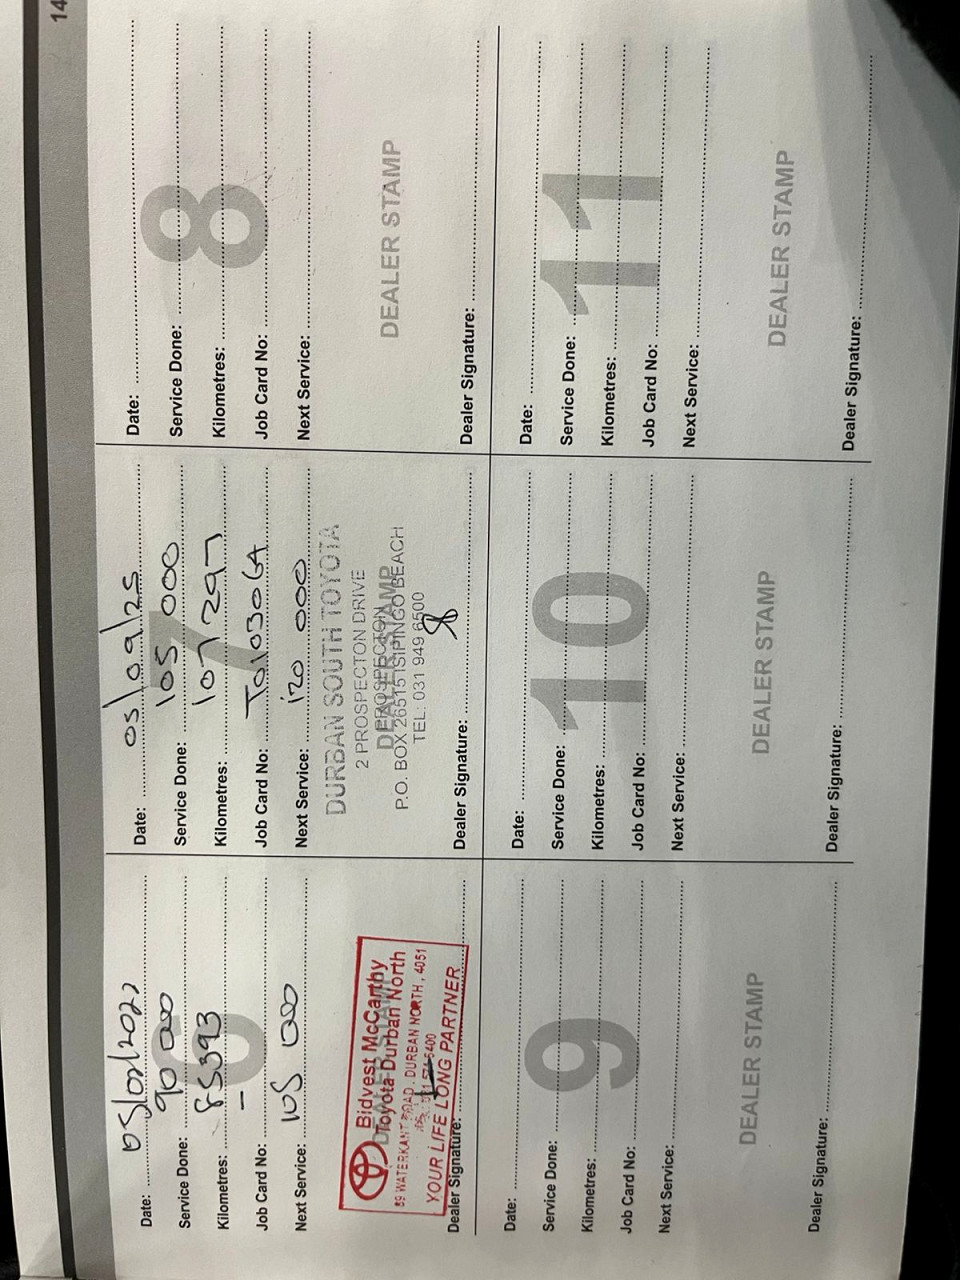 14
Date: 05/02/2022
Service Done: 90 000
Kilometres: 85393
Job Card No: –
Next Service: 105 000
DEALER STAMP
Bidvest McCarthy
Toyota Durban North
89 WATERKANT ROAD, DURBAN NORTH, 4051
YOUR LIFE LONG PARTNER
Dealer Signature:
6
Date: 05/09/25
Service Done: 105 000
Kilometres: 107297
Job Card No: T0103064
Next Service: 120 000
DURBAN SOUTH TOYOTA
2 PROSPECTON DRIVE
PROSPECTON
DEALER STAMP
P.O. BOX 26515 ISIPINGO BEACH
TEL: 031 949 6500
Dealer Signature:
7
Date:
Service Done:
Kilometres:
Job Card No:
Next Service:
DEALER STAMP
Dealer Signature:
8
Date:
Service Done:
Kilometres:
Job Card No:
Next Service:
DEALER STAMP
Dealer Signature:
9
Date:
Service Done:
Kilometres:
Job Card No:
Next Service:
DEALER STAMP
Dealer Signature:
10
Date:
Service Done:
Kilometres:
Job Card No:
Next Service:
DEALER STAMP
Dealer Signature:
11